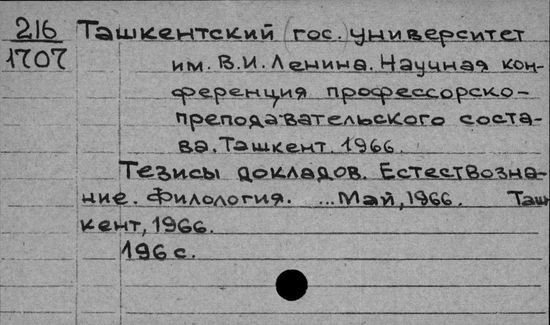 216 Ташкентский (гос.) университет
1707 им. В.И. Ленина. Научная кон-
ференция профессорско-
преподавательского соста-
ва. Ташкент. 1966.
Тезисы докладов. Естествозна-
ние. Филология. ... Май, 1966. Таш
кент, 1966.
196 с.